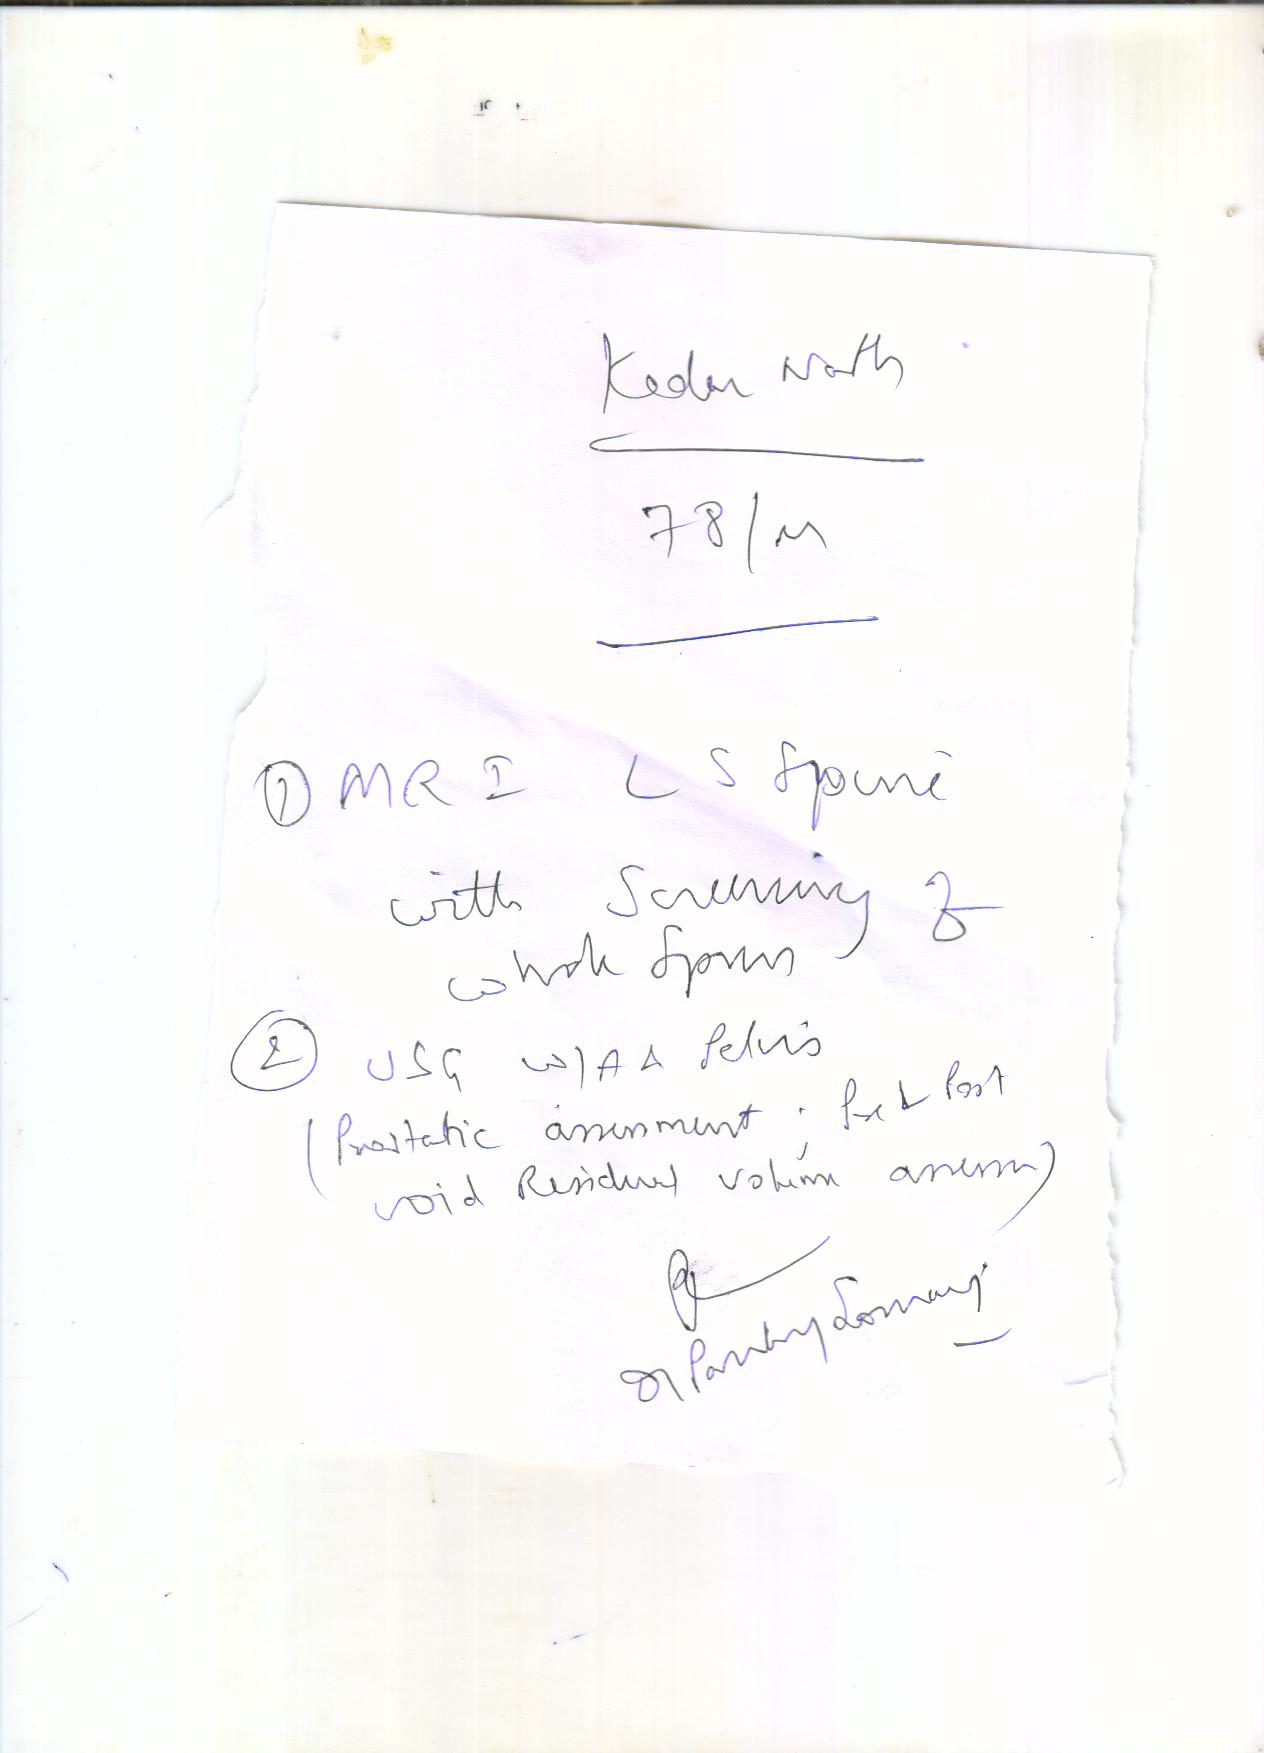 Kedar Nath
78/M
① MRI L S Spine
with Screening of
whole Spine
② USG w/A & Pelvis
(Prostatic assessment; Pre & Post
void Residual volume assessm)
Dr